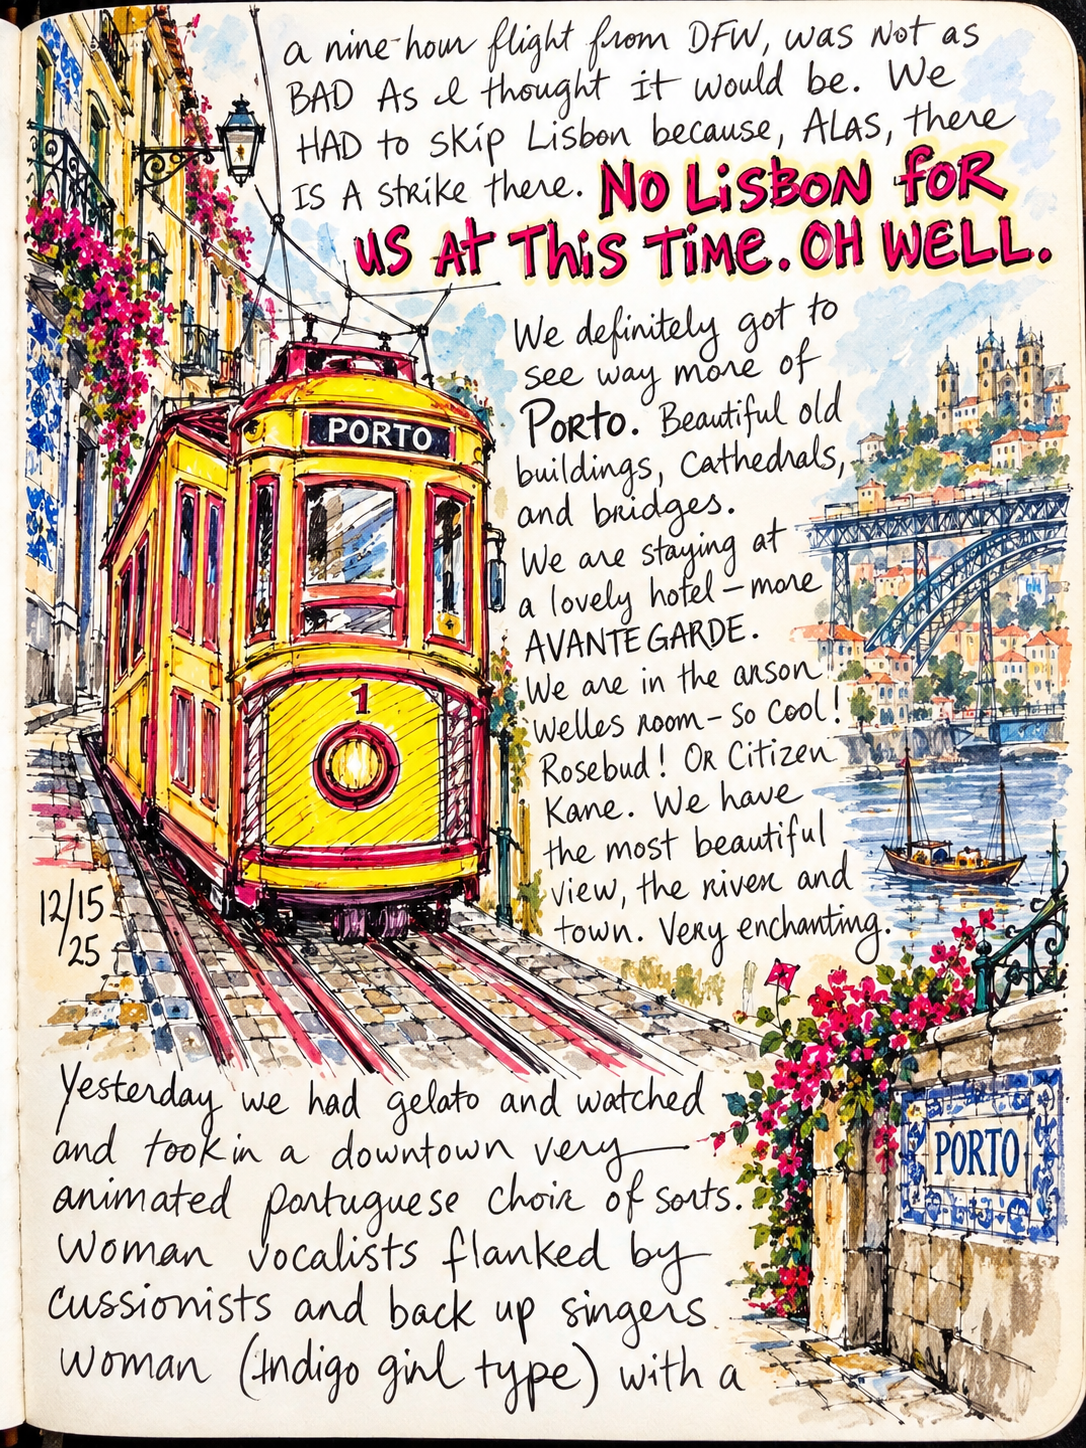 a nine-hour flight from DFW, was not as
BAD As I thought it would be. We
HAD to skip Lisbon because, ALAS, there
IS A strike there. NO LISBON for
us At This Time. OH WELL.
We definitely got to
see way more of
Porto. Beautiful old
buildings, Cathedrals,
and bridges.
We are staying at
a lovely hotel - more
AVANTE GARDE.
We are in the arson
Welles room - So Cool!
Rosebud! OR Citizen
Kane. We have
the most beautiful
view, the river and
town. Very enchanting.
PORTO
1
12/15
25
Yesterday we had gelato and watched
and took in a downtown very
animated portuguese choir of sorts.
Woman vocalists flanked by
cussionists and back up singers
woman (Indigo girl type) with a
PORTO